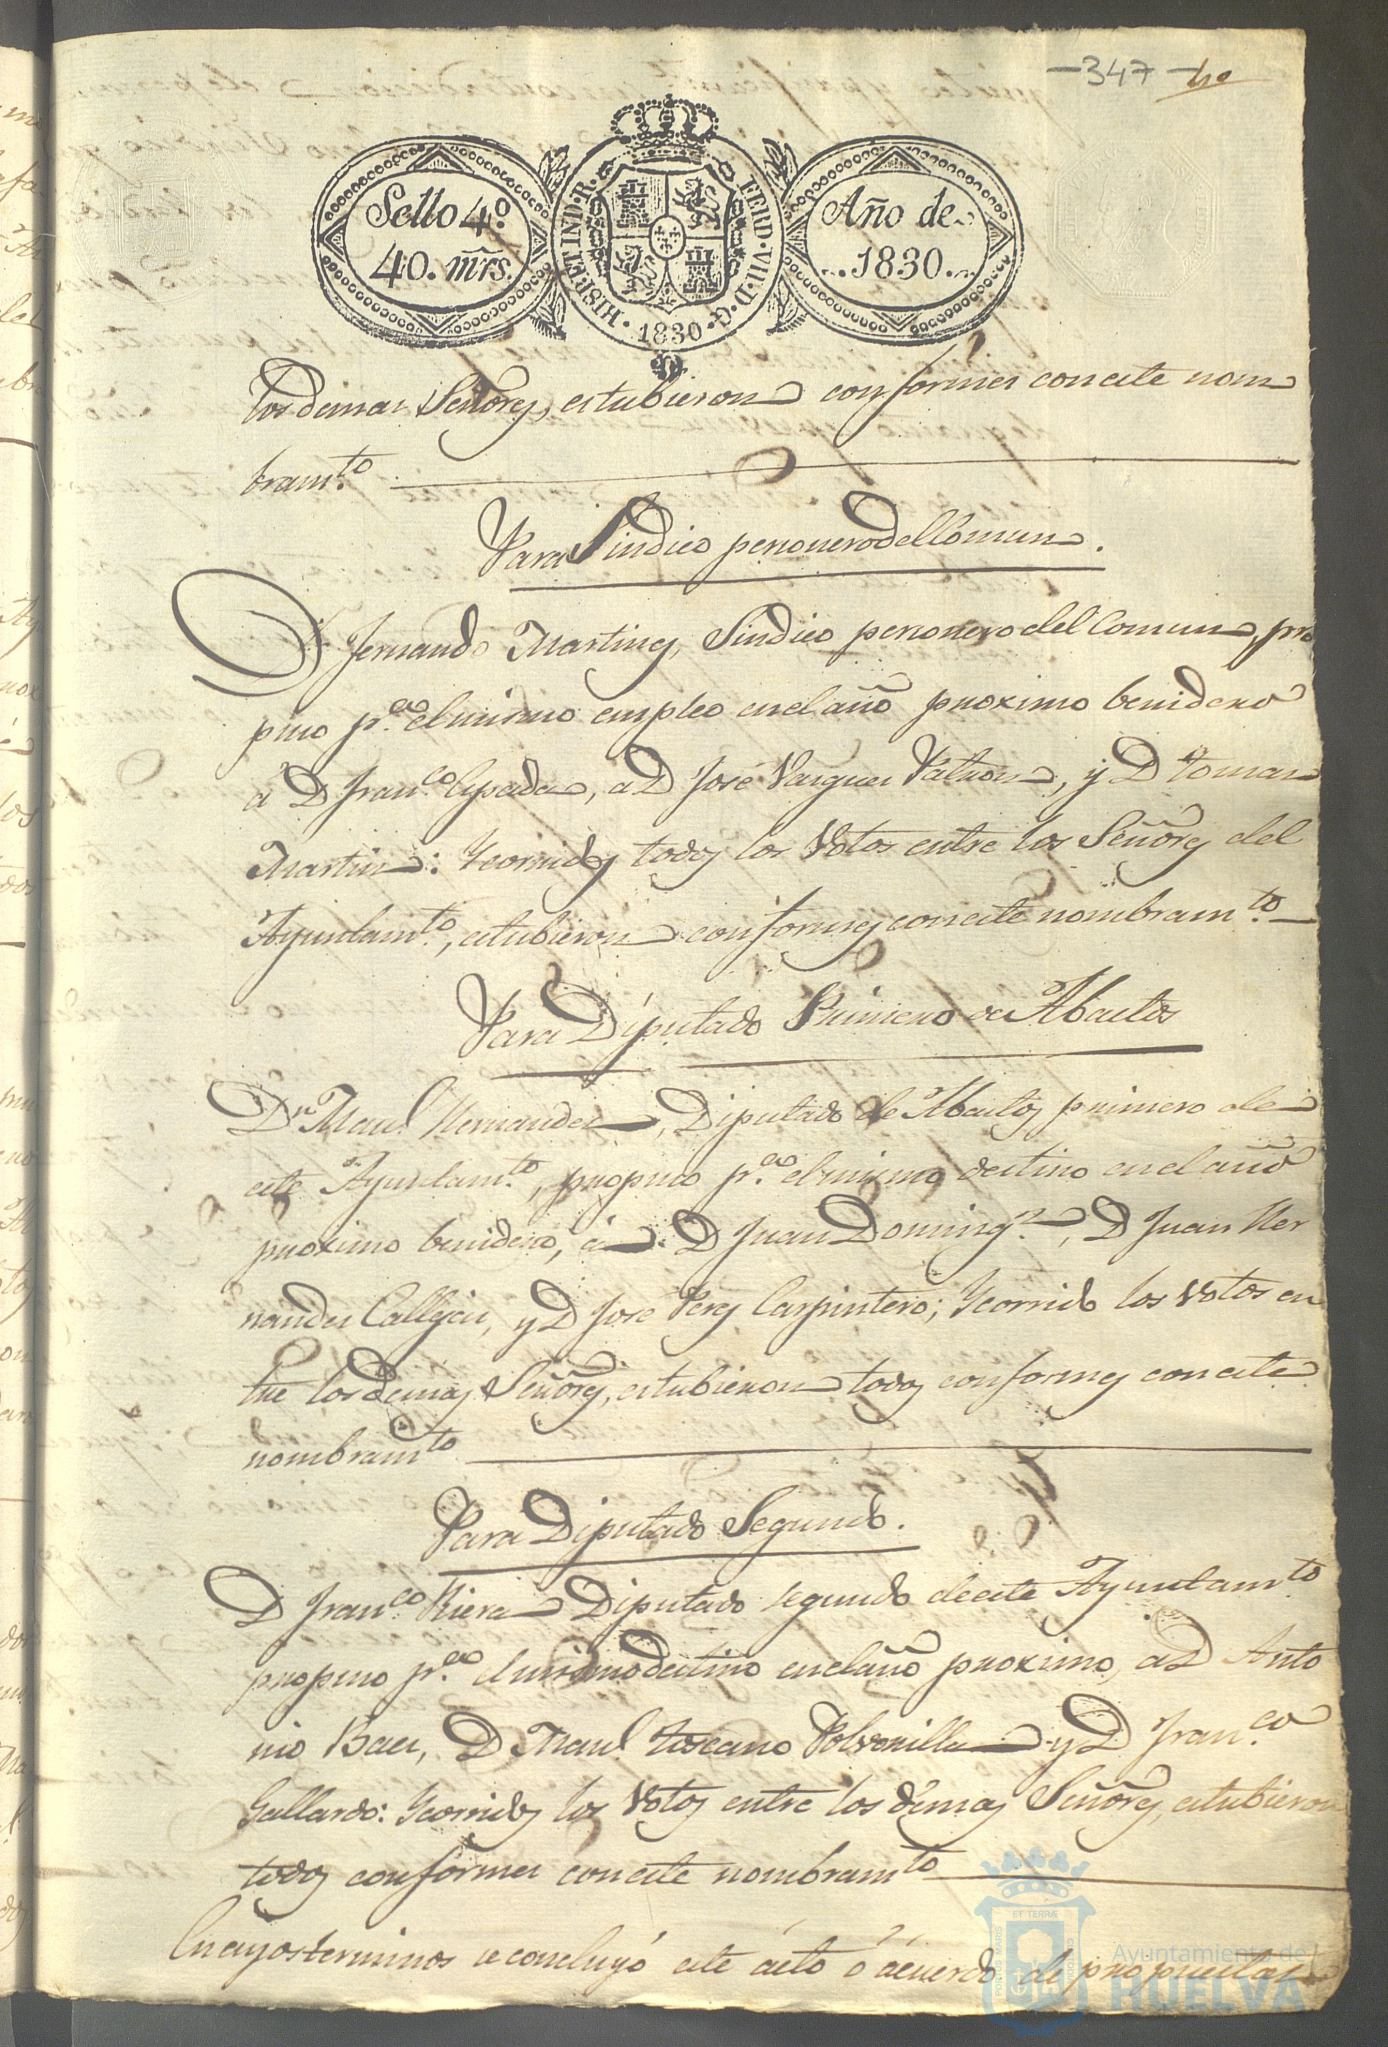 -347-
Sello 4º
40. mrs.
HISP. ET IND. R. FERD. VII. D. G. 1830
Año de
1830.
los demas Señores, estubieron conformes con este nom
bramto
Para Sindico personero del Comun.
D. Fernando Martinez, Sindico personero del Comun, pro
puso pa. el mismo empleo en el año proximo benidero
á D Franco Cepeda, a D José Vargues Patron, y D tomas
Martin: Ycorridos todos los Votos entre los Señores del
Ayuntamto., estubieron conformes con este nombramto
Para Diputado Primero de Abastos
Dn Manl Hernandez, Diputado de Abastos primero de
este Ayuntamto., propuso pa. el mismo destino en el año
proximo benidero, á D Juan Domingz., D Juan Her
nandes Callejas, y D José Perez Carpintero; Ycorrido los Votos en
tre los demas Señores, estubieron todos conformes con este
nombramto
Para Diputado Segundo.
D Franco Riera Diputado segundo de este Ayuntamto
propuso pa. el mismo destino en el año proximo, a D Anto
nio Baes, D Manl toscano Polvorilla y D Franco
Gallardo: Ycorridos los Votos entre los demas Señores, estubieron
todos conformes con este nombramto
En cuyos terminos se concluyó este acto ó acuerdo de propuestas
Ayuntamiento de
HUELVA